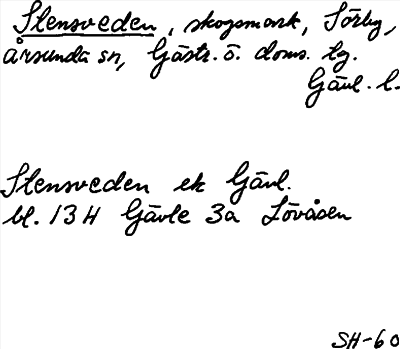 Stensveden, skogsmark, Sörby,
Årsunda sn, Gästr. ö. doms. tg.
Gävl. l.
Stensveden ek Gävl.
bl. 13 H Gävle 3a Lövåsen
SH-60